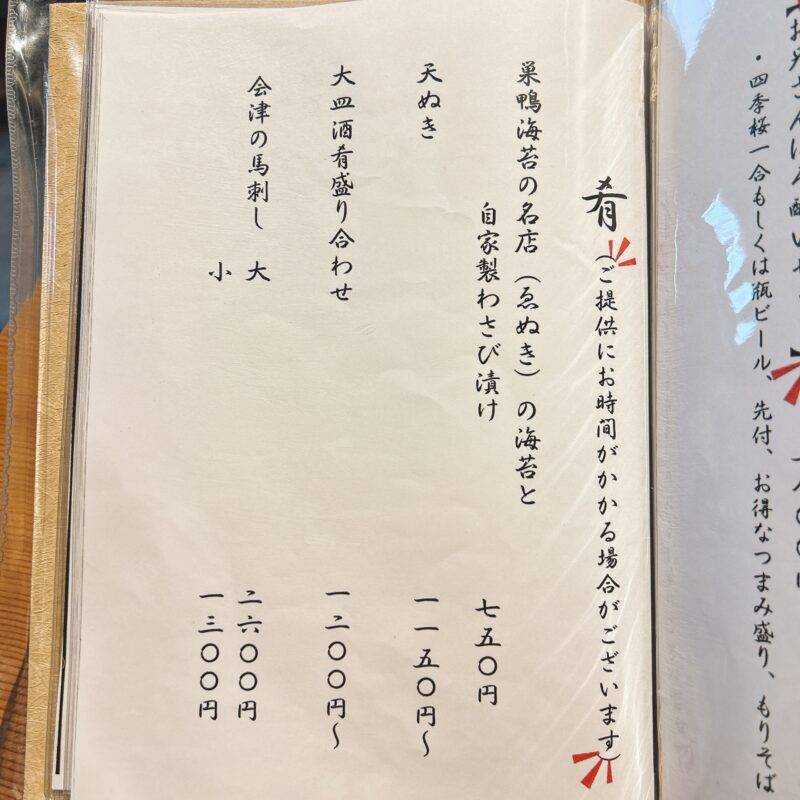 ・四季桜一合もしくは瓶ビール、先付、お得なつまみ盛り、もりそば
肴(ご提供にお時間がかかる場合がございます)
巣鴨海苔の名店(ゑぬき)の海苔と
自家製わさび漬け 七五〇円
天ぬき 一一五〇円～
大皿酒肴盛り合わせ 一二〇〇円～
会津の馬刺し 大 二六〇〇円
小 一三〇〇円